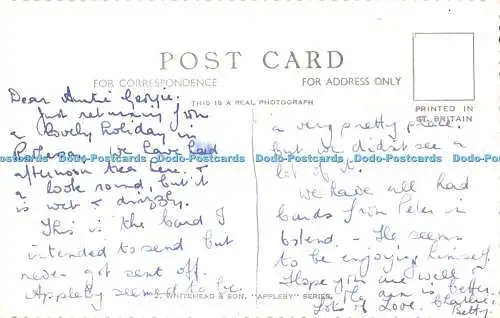 POST CARD
FOR CORRESPONDENCE
FOR ADDRESS ONLY
THIS IS A REAL PHOTOGRAPH
PRINTED IN
GT. BRITAIN
Dear Auntie Georgie.
Just returning from
a lovely holiday in
we have had
afternoon tea here. &
a look round, but it
is wet & drizzly.
This is the card I
intended to send but
never got sent off.
Appleby seemed to be
a very pretty place.
but we didn't see a
lot of it.
We have all had
cards from Peter in
Ostend. - He seems
to be enjoying himself.
Hope you are well &
the arm is better.
Lots of Love. Charlie.
Betty.
J. WHITEHEAD & SON, "APPLEBY" SERIES.
Dodo-Postcards Dodo-Postcards Dodo-Postcards Dodo-Postcards Dodo-Postcards